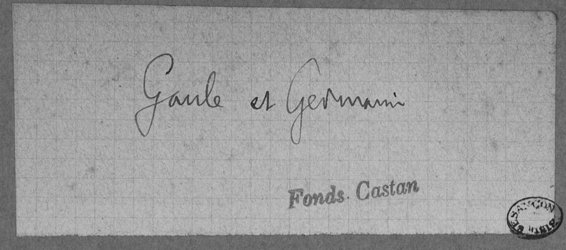 Gaule et Germanie
Fonds Castan
BESANÇON